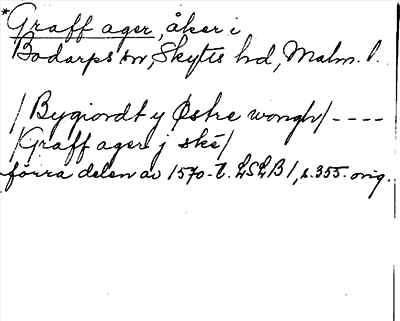 *Graff ager, åker i
Bodarps sn, Skytts hd, Malm. l.
/Bygiordt y Østre wongh/ ----
/Graff ager j ské/
förra delen av 1570-t. LSLB 1, s. 355. orig.